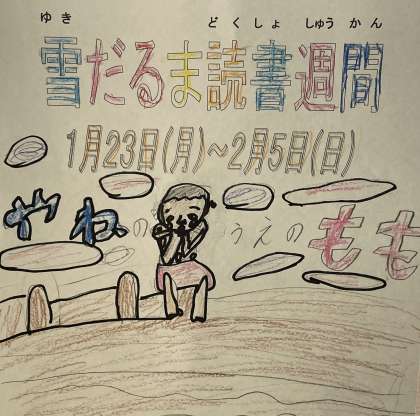 ゆき どくしょ しゅう かん
雪だるま読書週間
1月23日(月)~2月5日(日)
やねの うえのもも